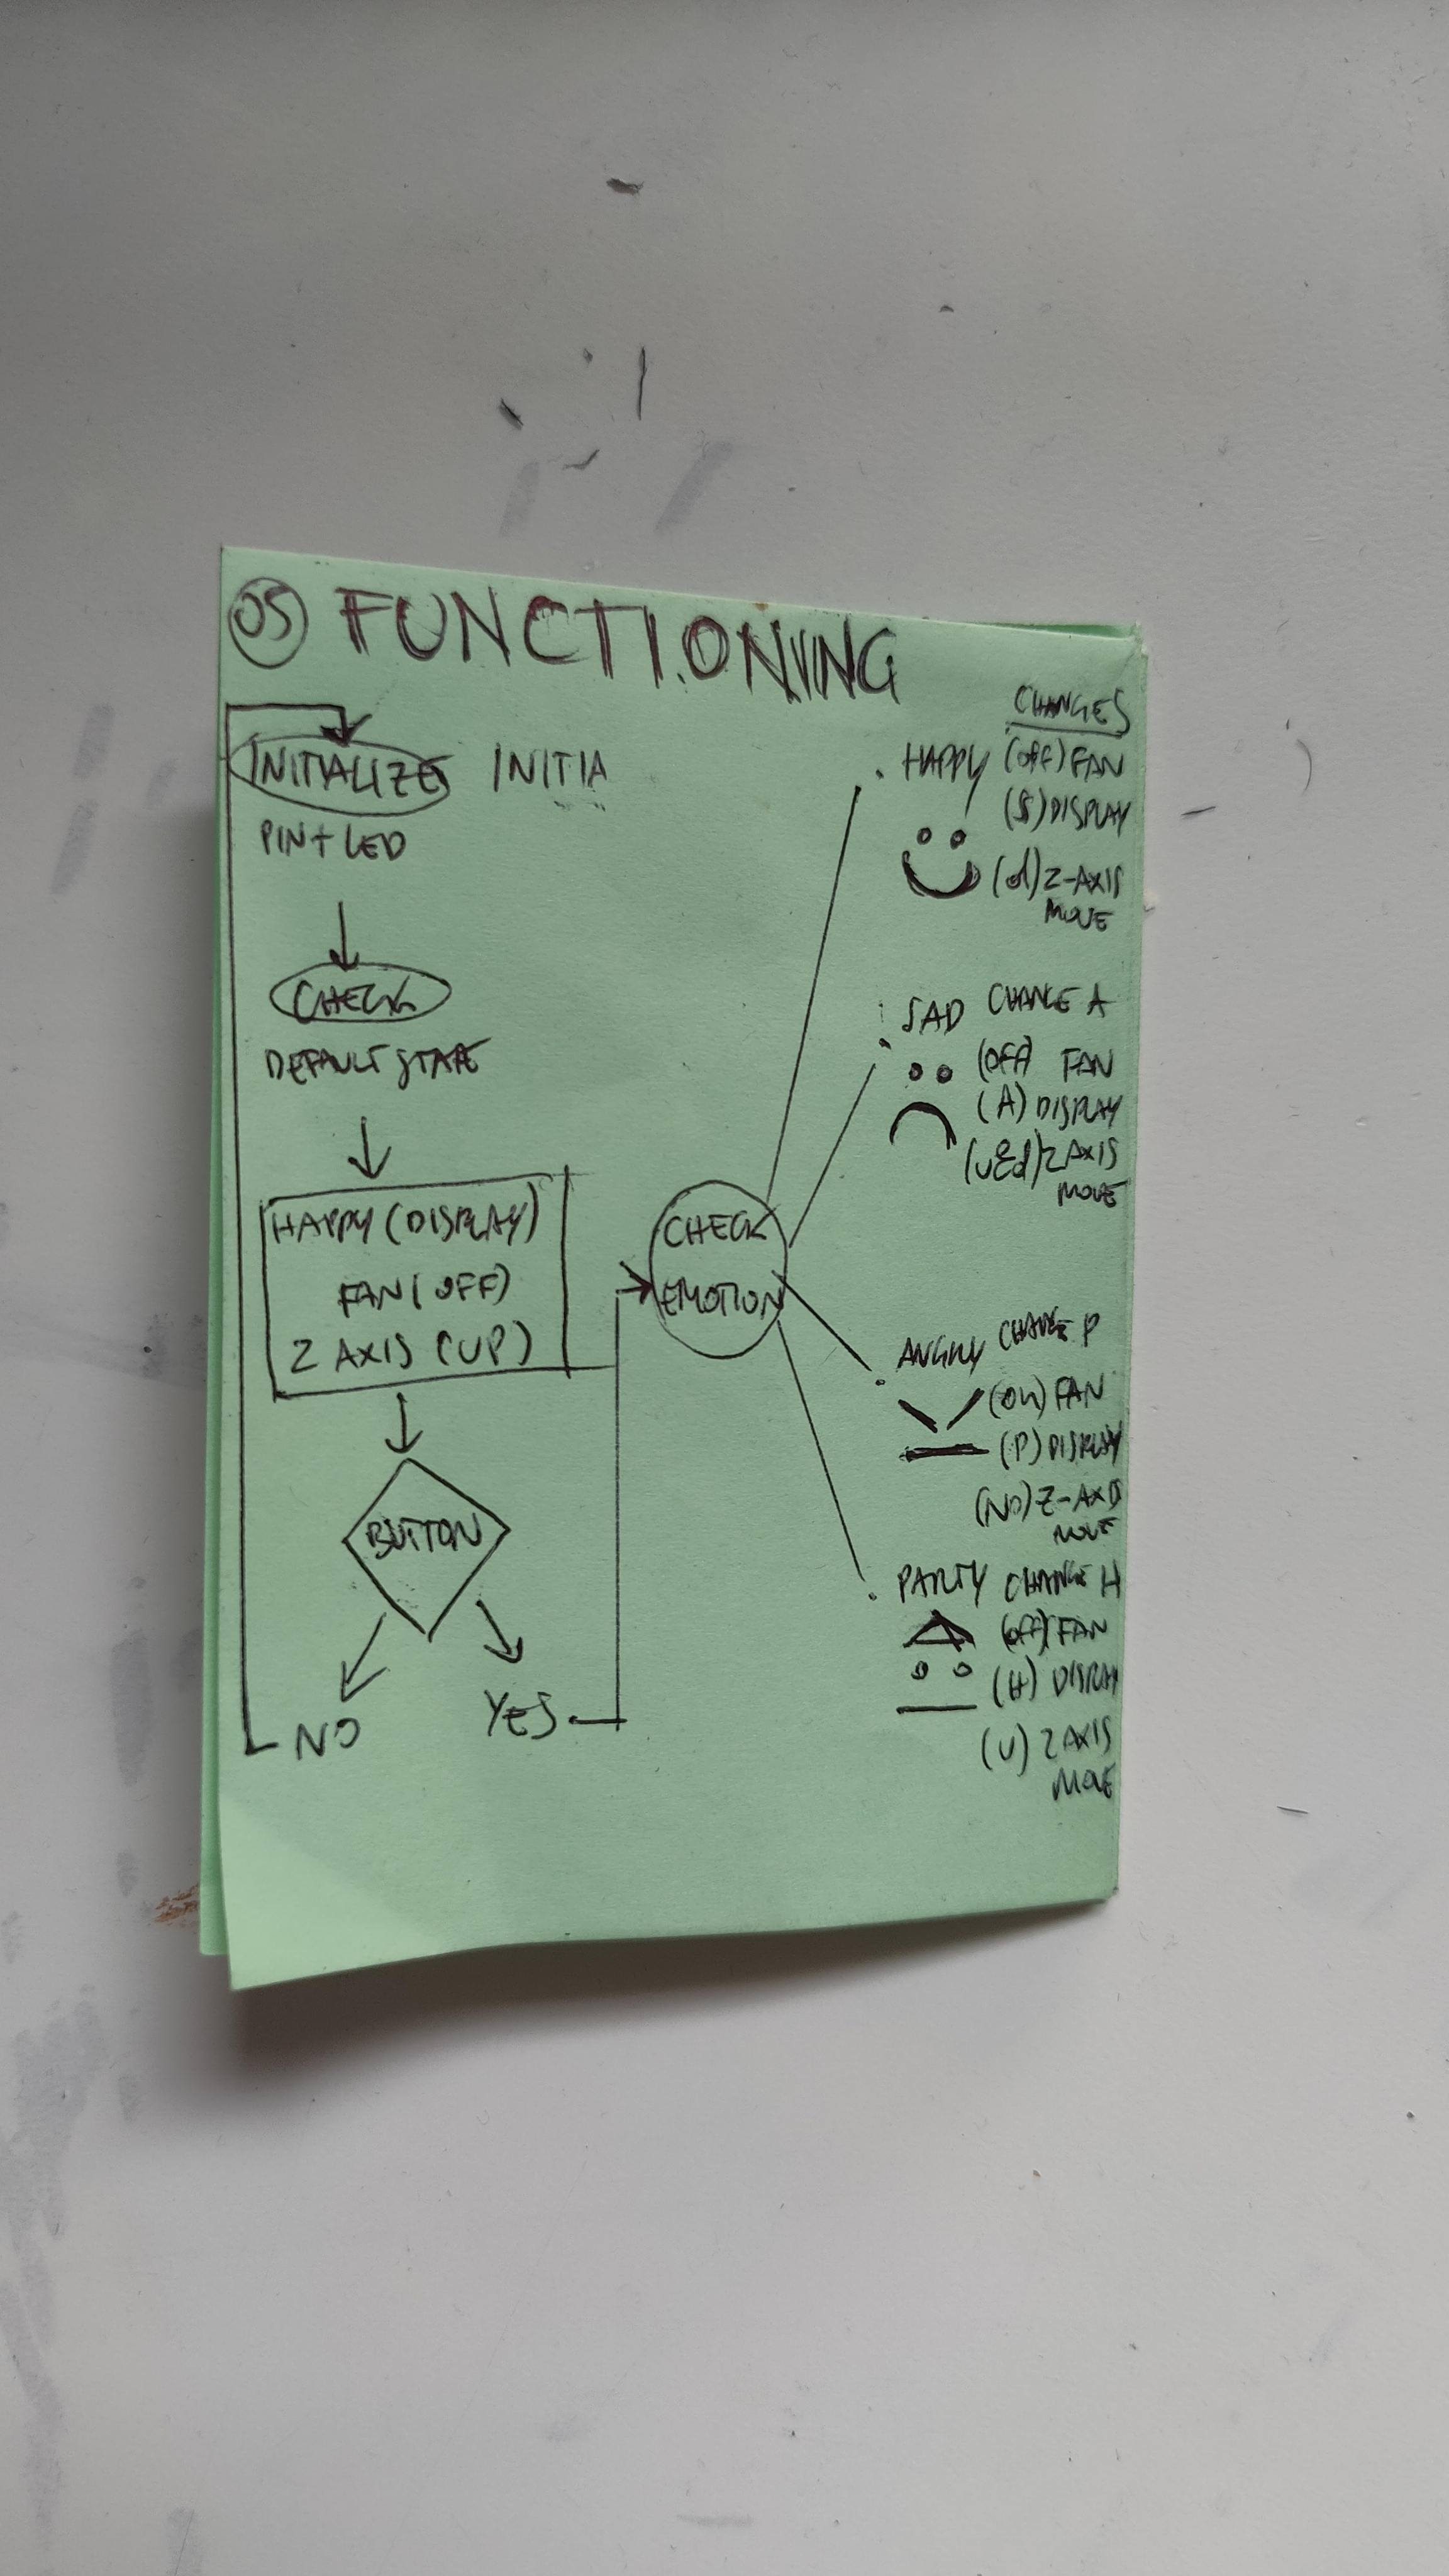 05 FUNCTIONING
INITIALIZE INITIA
PIN + LED
CHECK
DEFAULT STATE
HAPPY (DISPLAY)
FAN (OFF)
Z AXIS (UP)
BUTTON
NO
YES
CHECK
EMOTION
CHANGES
HAPPY (OFF) FAN
(S) DISPLAY
(d) Z-AXIS
MOVE
SAD CHANGE A
(OFF) FAN
(A) DISPLAY
(u&d) Z AXIS
MOVE
ANGRY CHANGE P
(ON) FAN
(P) DISPLAY
(NO) Z-AXIS
MOVE
PARTY CHANGE H
(OFF) FAN
(H) DISPLAY
(U) Z AXIS
MOVE